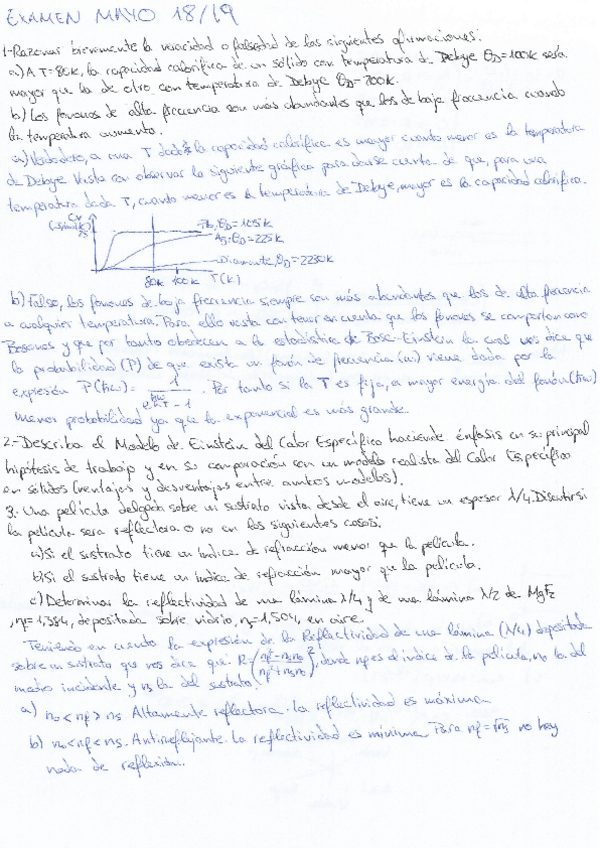 EXAMEN MAYO 18/19
1-Razonar brevemente la veracidad o falsedad de las siguientes afirmaciones:
a) A T=80K, la capacidad calorífica de un sólido con temperatura de Debye θD=100K sería
mayor que la de otro con temperatura de Debye θD=200K.
b) Los fonones de alta frecuencia son más abundantes que los de baja frecuencia cuando
la temperatura aumenta.
a) Verdadero, a una T dada la capacidad calorífica es mayor cuanto menor es la temperatura
de Debye. Basta con observar la siguiente gráfica para darse cuenta de que, para una
temperatura dada T, cuanto menor es la temperatura de Debye, mayor es la capacidad calorífica.
Cv
Pb, θD=105K
Ag, θD=225K
Diamante, θD=2230K
80K 100K T(K)
b) Falso, los fonones de baja frecuencia siempre son más abundantes que los de alta frecuencia
a cualquier temperatura. Para ello basta con tener en cuenta que los fonones se comportan como
Bosones y que por tanto obedecen a la estadística de Bose-Einstein la cual nos dice que
la probabilidad (P) de que exista un fonón de frecuencia (ω) viene dada por la
expresión P(ħω) = 1 / (e^(ħω/kT) - 1). Por tanto si la T es fija, a mayor energía del fonón (ħω)
menor probabilidad ya que la exponencial es más grande.
2.-Describa el Modelo de Einstein del Calor Específico haciendo énfasis en su principal
hipótesis de trabajo y en su comparación con un modelo realista del Calor Específico
en sólidos (ventajas y desventajas entre ambos modelos).
3.- Una película delgada sobre un sustrato vista desde el aire, tiene un espesor λ/4. Discutir si
la película sera reflectora o no en los siguientes casos:
a) Si el sustrato tiene un índice de refracción menor que la película.
b) Si el sustrato tiene un índice de refracción mayor que la película.
c) Determinar la reflectividad de una lámina λ/4 y de una lámina λ/2 de MgF2
, nf=1,384, depositada sobre vidrio, ns=1,504, en aire.
Teniendo en cuenta la expresión de la Reflectividad de una lámina (λ/4) depositada
sobre un sustrato que nos dice que: R=((nf²-nsno)/(nf²+nsno))², donde nf es el índice de la película, no la del
medio incidente y ns la del sustrato.
a) no<nf>ns Altamente reflectora. la reflectividad es máxima
b) no<nf<ns. Antireflejante. La reflectividad es mínima. Para nf=√ns no hay
nada de reflexión.